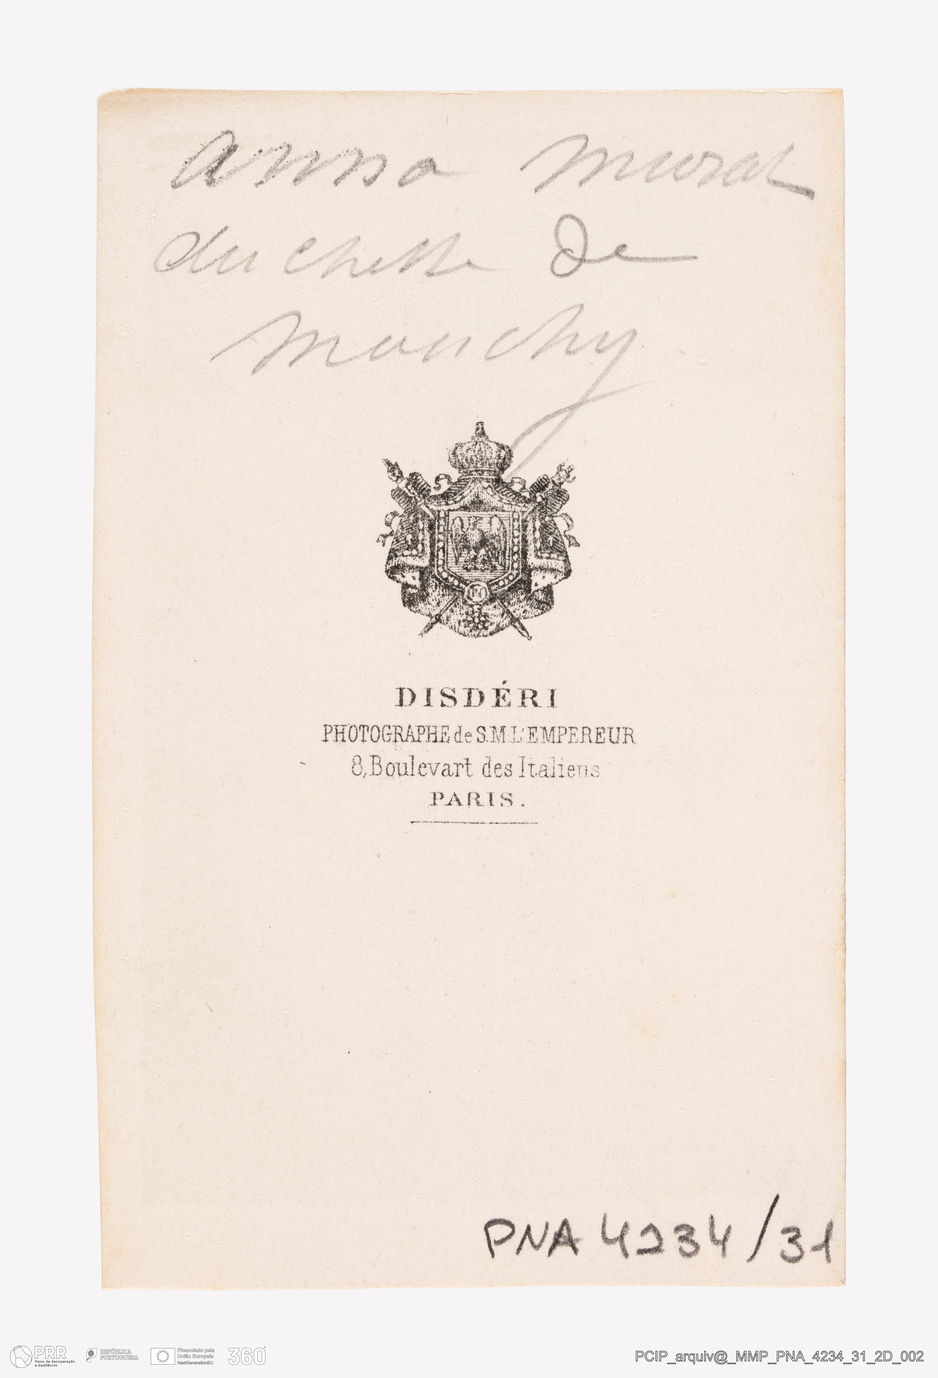 Anna Murat
duchesse De
Mouchy
DISDÉRI
PHOTOGRAPHE de S.M L'EMPEREUR
8, Boulevart des Italiens
PARIS.
PNA 4234/31
PRR
Plano de Recuperação
e Resiliência
REPÚBLICA
PORTUGUESA
Financiado pela
União Europeia
NextGenerationEU
360
PCIP_arquiv@_MMP_PNA_4234_31_2D_002